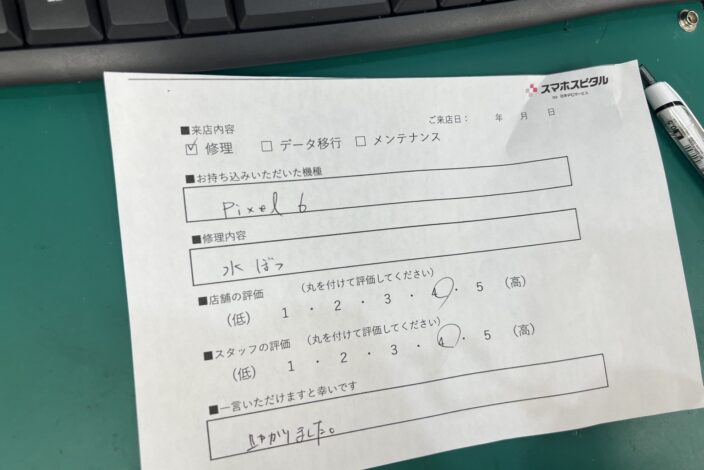 スマホスピタル
■来店内容
ご来店日： 年 月 日
☑ 修理 □ データ移行 □ メンテナンス
■お持ち込みいただいた機種
Pixel 6
■修理内容
水ぼつ
■店舗の評価 （丸を付けて評価してください）
（低） 1 ・ 2 ・ 3 ・ 4 ・ 5 （高）
■スタッフの評価 （丸を付けて評価してください）
（低） 1 ・ 2 ・ 3 ・ 4 ・ 5 （高）
■一言いただけますと幸いです
助かりました。